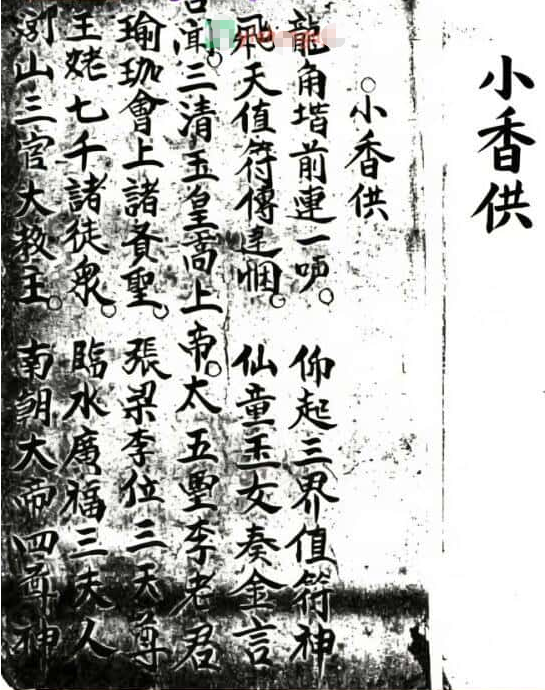 小香供
○小香供
龍角堦前連一吹。仰起三界值符神
飛天值符傳達悃。仙童玉女奏金言
聞。三清玉皇高上帝。太五聖李老君
瑜珈會上諸賢聖。張梁李位三天尊
王姥七千諸徒衆。臨水廣福三夫人
山三官大教主。南朝大帝四尊神